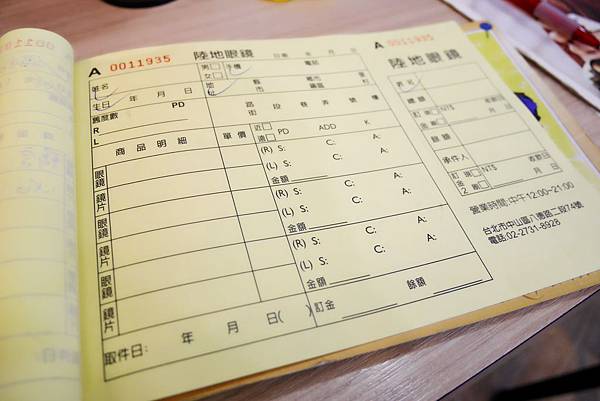 A 0011935 陸地眼鏡 日期 年 月 日
姓名 男 手機 電話
女 地址 縣市 鄉市鎮區 里村
生日 年 月 日
舊度數 PD 路街 段 巷 弄 號 樓
R
L 近 遠 PD ADD K
商品明細 單價 (R) S: C: A:
(L) S: C: A:
眼鏡 金額
鏡片 (R) S: C: A:
(L) S: C: A:
眼鏡 金額
鏡片 (R) S: C: A:
(L) S: C: A:
眼鏡 金額
鏡片 訂金 餘額
取件日: 年 月 日( )
A 0011935
陸地眼鏡
姓名
總額 NT$
訂金 現 刷 收款日
餘額
承件人
訂金2 現 刷 NT$ 收款日
營業時間:中午12:00~21:00
台北市中山區八德路二段74號
電話:02-2731-8928